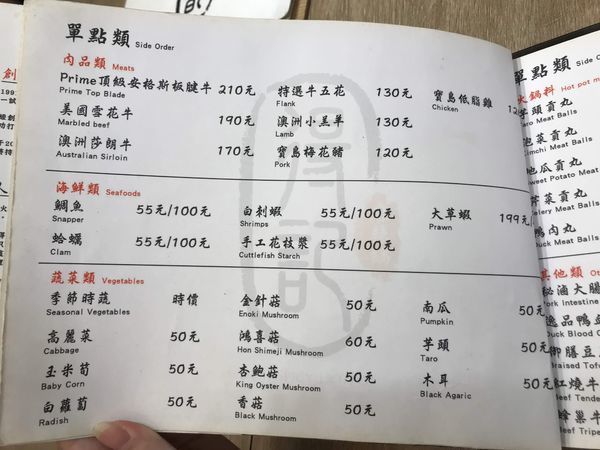 單點類 Side Order
肉品類 Meats
Prime頂級安格斯板腱牛 210元
Prime Top Blade
特選牛五花 130元
Flank
寶島低脂雞
Chicken
美國雪花牛 190元
Marbled beef
澳洲小羔羊 130元
Lamb
澳洲莎朗牛 170元
Australian Sirloin
寶島梅花豬 120元
Pork
海鮮類 Seafoods
鯛魚 55元/100元
Snapper
白刺蝦 55元/100元
Shrimps
大草蝦 199元/
Prawn
蛤蠣 55元/100元
Clam
手工花枝漿 55元/100元
Cuttlefish Starch
蔬菜類 Vegetables
季節時蔬 時價
Seasonal Vegetables
金針菇 50元
Enoki Mushroom
南瓜 50元
Pumpkin
高麗菜 50元
Cabbage
鴻喜菇 60元
Hon Shimeji Mushroom
芋頭 50元
Taro
玉米筍 50元
Baby Corn
杏鮑菇 50元
King Oyster Mushroom
木耳 50元
Black Agaric
白蘿蔔 50元
Radish
香菇 50元
Black Mushroom
單點類 Side
火鍋料 Hot pot
芋頭貢丸
Taro Meat Balls
泡菜貢丸
Kimchi Meat Balls
地瓜貢丸
Sweet Potato Meat
芹菜貢丸
Celery Meat Balls
鴨肉丸
Duck Meat Balls
其他類
秘滷大腸
Pork Intestine
逸品鴨血
Duck Blood
御膳豆
Braised Tofu
紅燒牛
Beef Tende
蜂巢牛
Beef Tripe